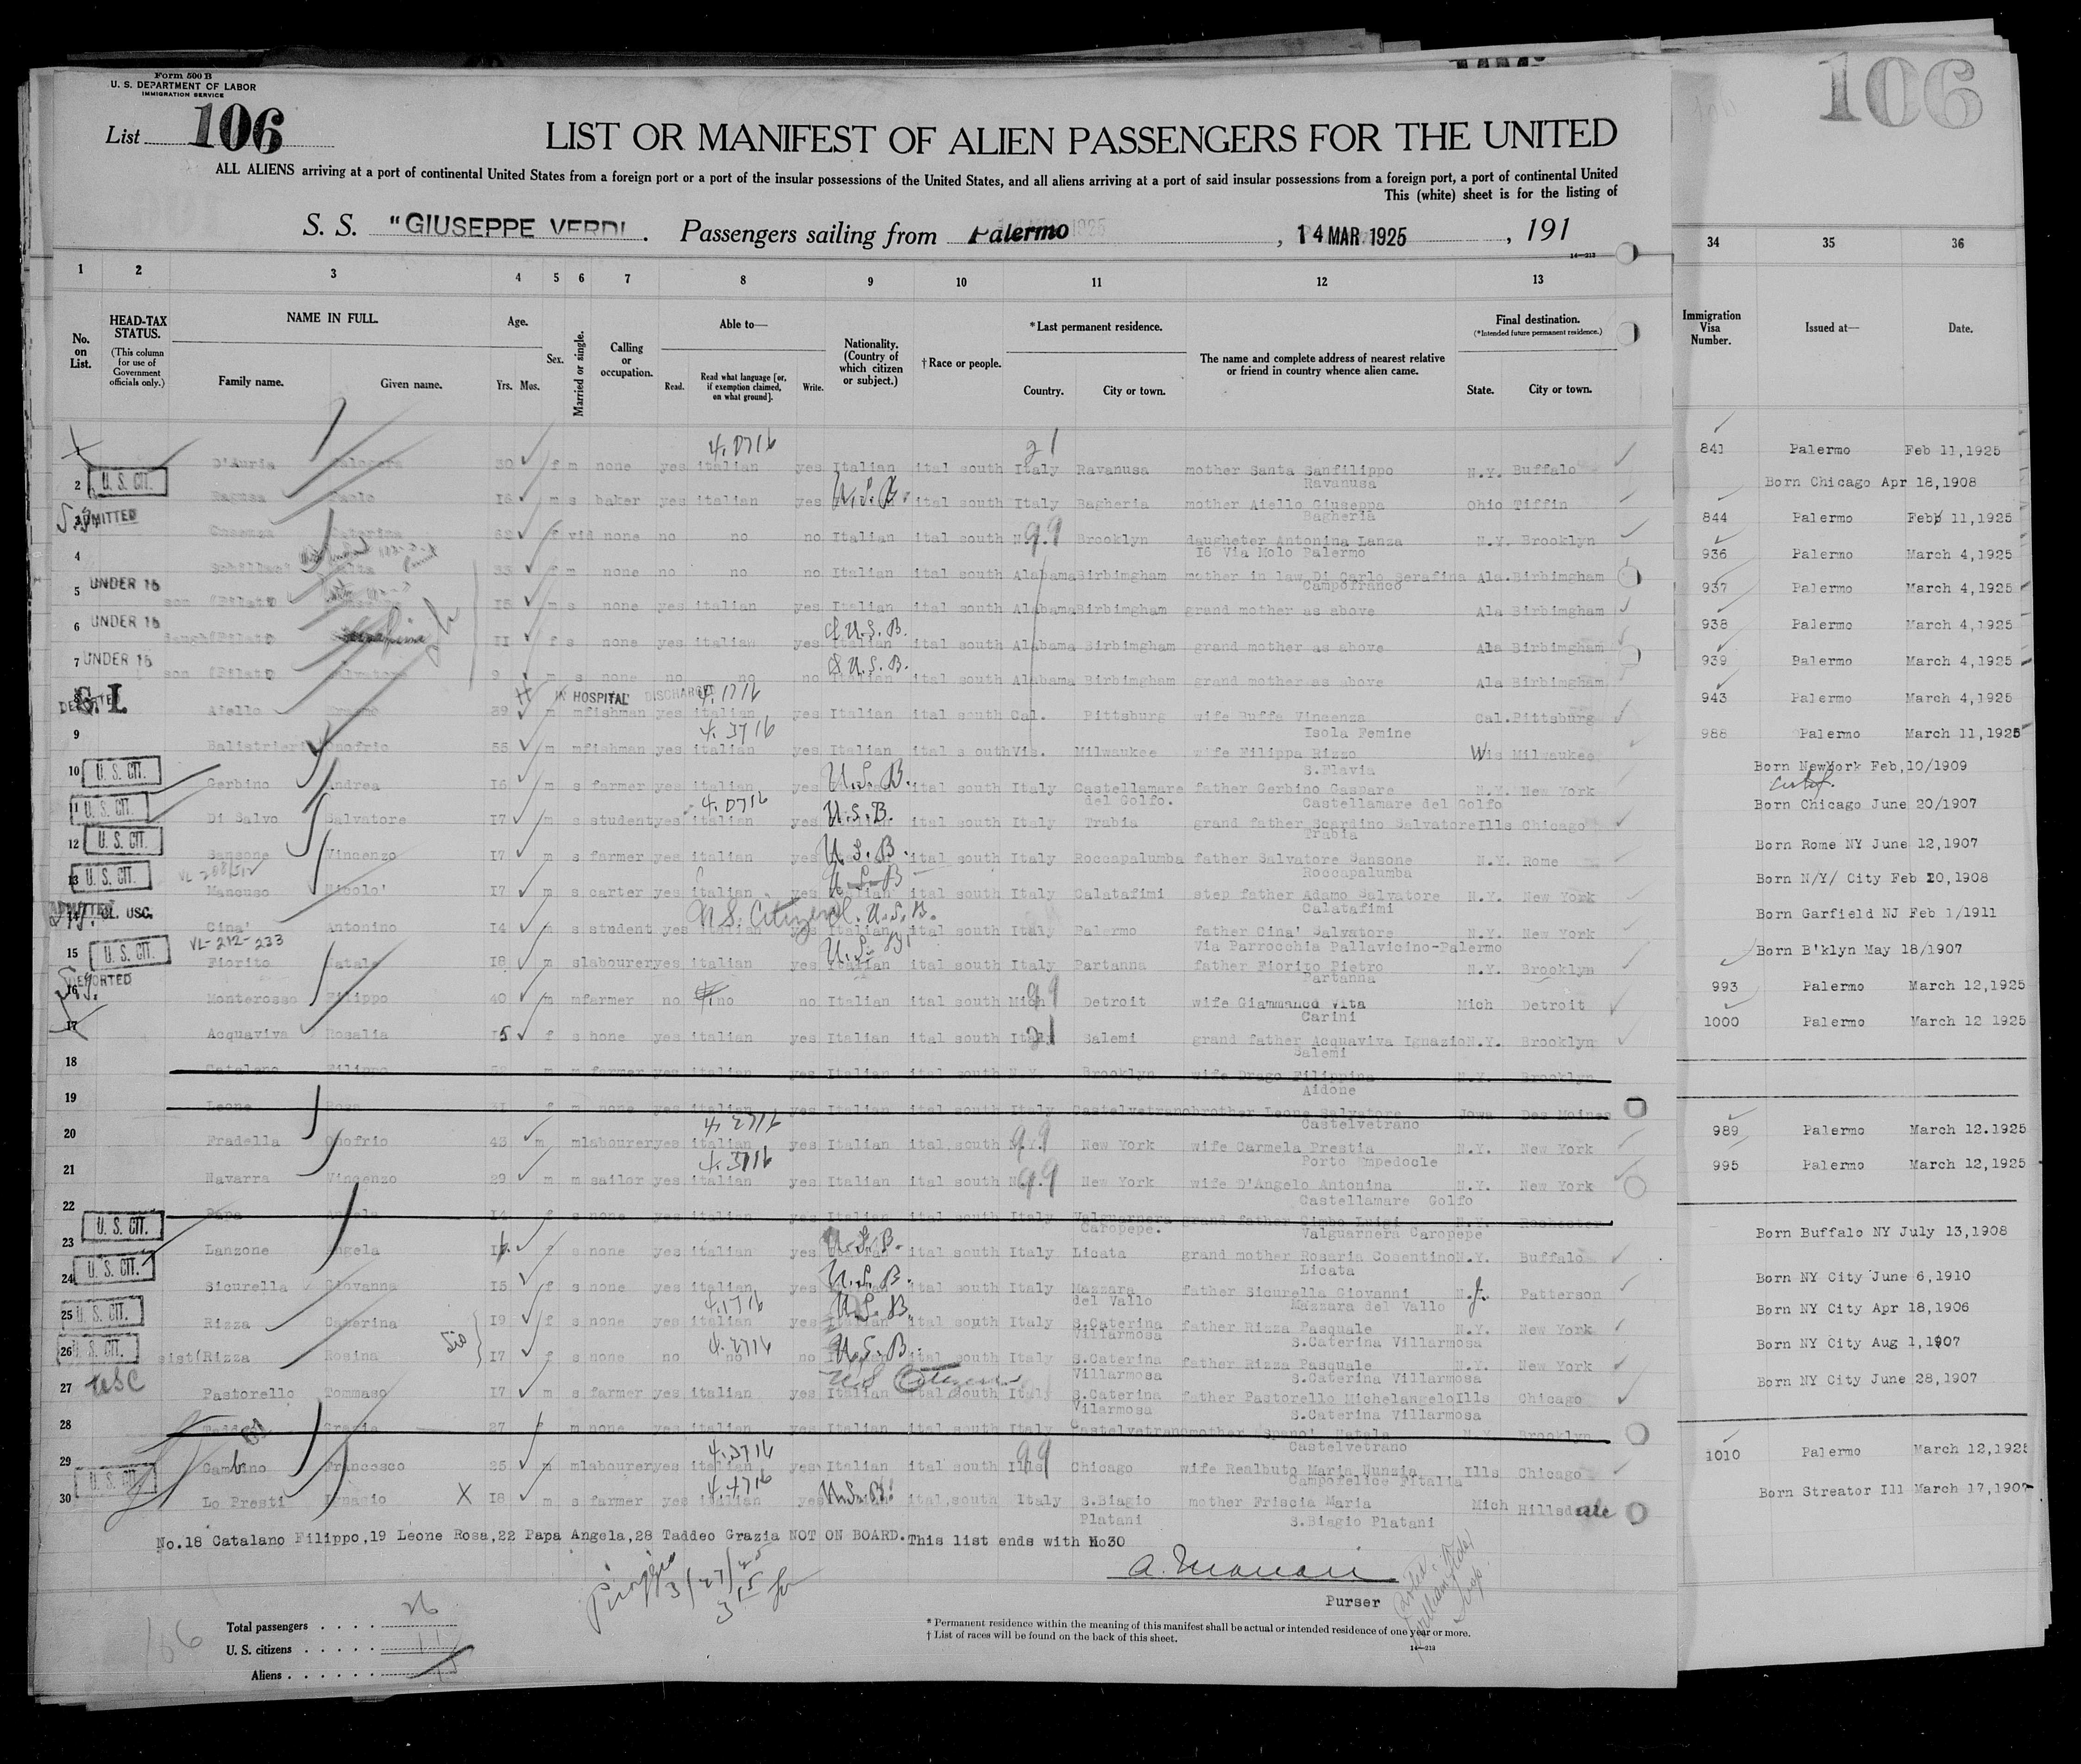 Form 500 B
U. S. DEPARTMENT OF LABOR
IMMIGRATION SERVICE
List 106
106
LIST OR MANIFEST OF ALIEN PASSENGERS FOR THE UNITED
ALL ALIENS arriving at a port of continental United States from a foreign port or a port of the insular possessions of the United States, and all aliens arriving at a port of said insular possessions from a foreign port, a port of continental United
This (white) sheet is for the listing of
S. S. "GIUSEPPE VERDI. Passengers sailing from Palermo, 14 MAR. 1925, 191
14—213
1 2 3 4 5 6 7 8 9 10 11 12 13 34 35 36
No. on List.
HEAD-TAX STATUS. (This column for use of Government officials only.)
NAME IN FULL. Family name. Given name.
Age. Yrs. Mos.
Sex.
Married or single.
Calling or occupation.
Able to— Read. Read what language [or, if exemption claimed, on what ground]. Write.
Nationality. (Country of which citizen or subject.)
†Race or people.
*Last permanent residence. Country. City or town.
The name and complete address of nearest relative or friend in country whence alien came.
Final destination. (*Intended future permanent residence.) State. City or town.
Immigration Visa Number. Issued at— Date.
D'Auria Calogera 30 f m none yes italian yes Italian ital south Italy Ravanusa mother Santa Sanfilippo Ravanusa N.Y. Buffalo 841 Palermo Feb 11,1925
2 U. S. CIT. Ragusa Paolo 16 m s baker yes italian yes U.S.B. ital south Italy Bagheria mother Aiello Giuseppa Bagheria Ohio Tiffin Born Chicago Apr 18,1908
3 ADMITTED f wid none no no no Italian ital south Brooklyn daugheter Antonina Lanza I6 Via Molo Palermo N.Y. Brooklyn 844 Palermo Feb 11,1925
4 33 f m none no no no Italian ital south Alabama Birbimgham mother in law Di Carlo Serafina Campofranco Ala. Birbimgham 936 Palermo March 4,1925
5 UNDER 16 son (Pilato 15 m s none yes italian yes Italian ital south Alabama Birbimgham grand mother as above Ala Birbimgham 937 Palermo March 4,1925
6 UNDER 16 daugh(Pilato 11 f s none yes italian yes Italian U.S.B. ital south Alabama Birbimgham grand mother as above Ala Birbimgham 938 Palermo March 4,1925
7 UNDER 16 son (Pilato Salvatore 9 m s none no no no Italian U.S.B. ital south Alabama Birbimgham grand mother as above Ala Birbimgham 939 Palermo March 4,1925
S.I. IN HOSPITAL DISCHARGED Aiello 39 m m fishman yes italian yes Italian ital south Cal. Pittsburg wife Buffa Vincenza Isola Femine Cal. Pittsburg 943 Palermo March 4,1925
9 Balistrieri Onofrio 55 m m fishman yes italian yes Italian ital s outh Vis. Milwaukee wife Filippa Rizzo S.Flavia Wis Milwaukee 988 Palermo March 11,1925
10 U. S. CIT. Gerbino Andrea 16 m s farmer yes italian yes U.S.B. ital south Italy Castellamare del Golfo. father Gerbino Gaspare Castellamare del Golfo N.Y. New York Born NewYork Feb,10/1909
11 U. S. CIT. Di Salvo Salvatore 17 m s student yes italian yes U.S.B. ital south Italy Trabia grand father Scardino Salvatore Trabia Ills Chicago Born Chicago June 20/1907
12 U. S. CIT. Sansone Vincenzo 17 m s farmer yes italian yes U.S.B. ital south Italy Roccapalumba father Salvatore Sansone Roccapalumba N.Y. Rome Born Rome NY June 12,1907
13 U. S. CIT. Mancuso Nicolo' 17 m s carter yes italian yes U.S.B ital south Italy Calatafimi step father Adamo Salvatore Calatafimi N.Y. New York Born N/Y/ City Feb 20,1908
14 ADMITTED CL. USC. Cina' Antonino 14 m s student yes italian U.S. Citizen yes Italian U.S.B. ital south Italy Palermo father Cina' Salvatore Via Parrocchia Pallavicino-Palermo N.Y. New York Born Garfield NJ Feb 1/1911
15 U. S. CIT. VL-212-233 Fiorito Natale 18 m s labourer yes italian yes Italian ital south Italy Partanna father Fiorito Pietro Partanna N.Y. Brooklyn Born B'klyn May 18/1907
16 DEPORTED Monterosso Filippo 40 m m farmer no no no Italian ital south Mich Detroit wife Giammanco Vita Carini Mich Detroit 993 Palermo March 12,1925
17 Acquaviva Rosalia 15 f s hone yes italian yes Italian ital south Italy Salemi grand father Acquaviva Ignazio Salemi N.Y. Brooklyn 1000 Palermo March 12 1925
18 Catalano Filippo m m farmer yes italian yes Italian ital south N.Y. Brooklyn wife Drago Filippina Aidone N.Y. Brooklyn
19 Leone Rosa 31 f m none yes italian yes Italian ital south Italy Castelvetrano brother Leone Salvatore Castelvetrano Jowa Des Moines
20 Fradella Onofrio 43 m m labourer yes italian yes Italian ital south N.Y. New York wife Carmela Prestia Porto Empedocle N.Y. New York 989 Palermo March 12.1925
21 Navarra Vincenzo 29 m m sailor yes italian yes Italian ital south New York wife D'Angelo Antonina Castellamare Golfo N.Y. New York 995 Palermo March 12,1925
22 Papa Angela 14 f s none yes italian yes Italian ital south Italy Valguarnera Caropepe. grand father Cimbo Luigi Valguarnera Caropepe N.Y. Rochester
23 U. S. CIT. Lanzone Angela 16 f s none yes italian yes U.S.B. ital south Italy Licata grand mother Rosaria Cosentino Licata N.Y. Buffalo Born Buffalo NY July 13,1908
24 U. S. CIT. Sicurella Giovanna 15 f s none yes italian yes U.S.B. ital south Italy Mazzara del Vallo father Sicurella Giovanni Mazzara del Vallo N.J. Patterson Born NY City June 6,1910
25 U. S. CIT. Rizza Caterina 19 f s none yes italian yes U.S.B. ital south Italy S.Caterina Villarmosa father Rizza Pasquale S.Caterina Villarmosa N.Y. New York Born NY City Apr 18,1906
26 U. S. CIT. sist(Rizza Rosina 17 f s none no no no U.S.B. ital south Italy S.Caterina Villarmosa father Rizza Pasquale S.Caterina Villarmosa N.Y. New York Born NY City Aug 1,1907
27 USC Pastorello Tommaso 17 m s farmer yes italian yes Italian US Citizen ital south Italy S.Caterina Vilarmosa father Pastorello Michelangelo S.Caterina Villarmosa Ills Chicago Born NY City June 28,1907
28 Taddeo Grazia 27 f m none yes italian yes Italian ital south Italy Castelvetrano mother Spano' Natala Castelvetrano N.Y. Brooklyn
29 Gambino Francesco 25 m m labourer yes italian yes Italian ital south Ills Chicago wife Realbuto Maria Nunzia Campofelice Fitalia Ills Chicago 1010 Palermo March 12,1925
30 U. S. CIT. Lo Presti Ignazio X 18 m s farmer yes italian yes U.S.B. ital south Italy S.Biagio Platani mother Friscia Maria S.Biagio Platani Mich Hillsdale Born Streator Ill March 17,1907
No.18 Catalano Filippo,19 Leone Rosa,22 Papa Angela,28 Taddeo Grazia NOT ON BOARD. This list ends with No30
Purser
3/27/25
Total passengers . . . . 26
U. S. citizens . . . . . 11
Aliens . . . . . .
106
* Permanent residence within the meaning of this manifest shall be actual or intended residence of one year or more.
† List of races will be found on the back of this sheet.
14—213